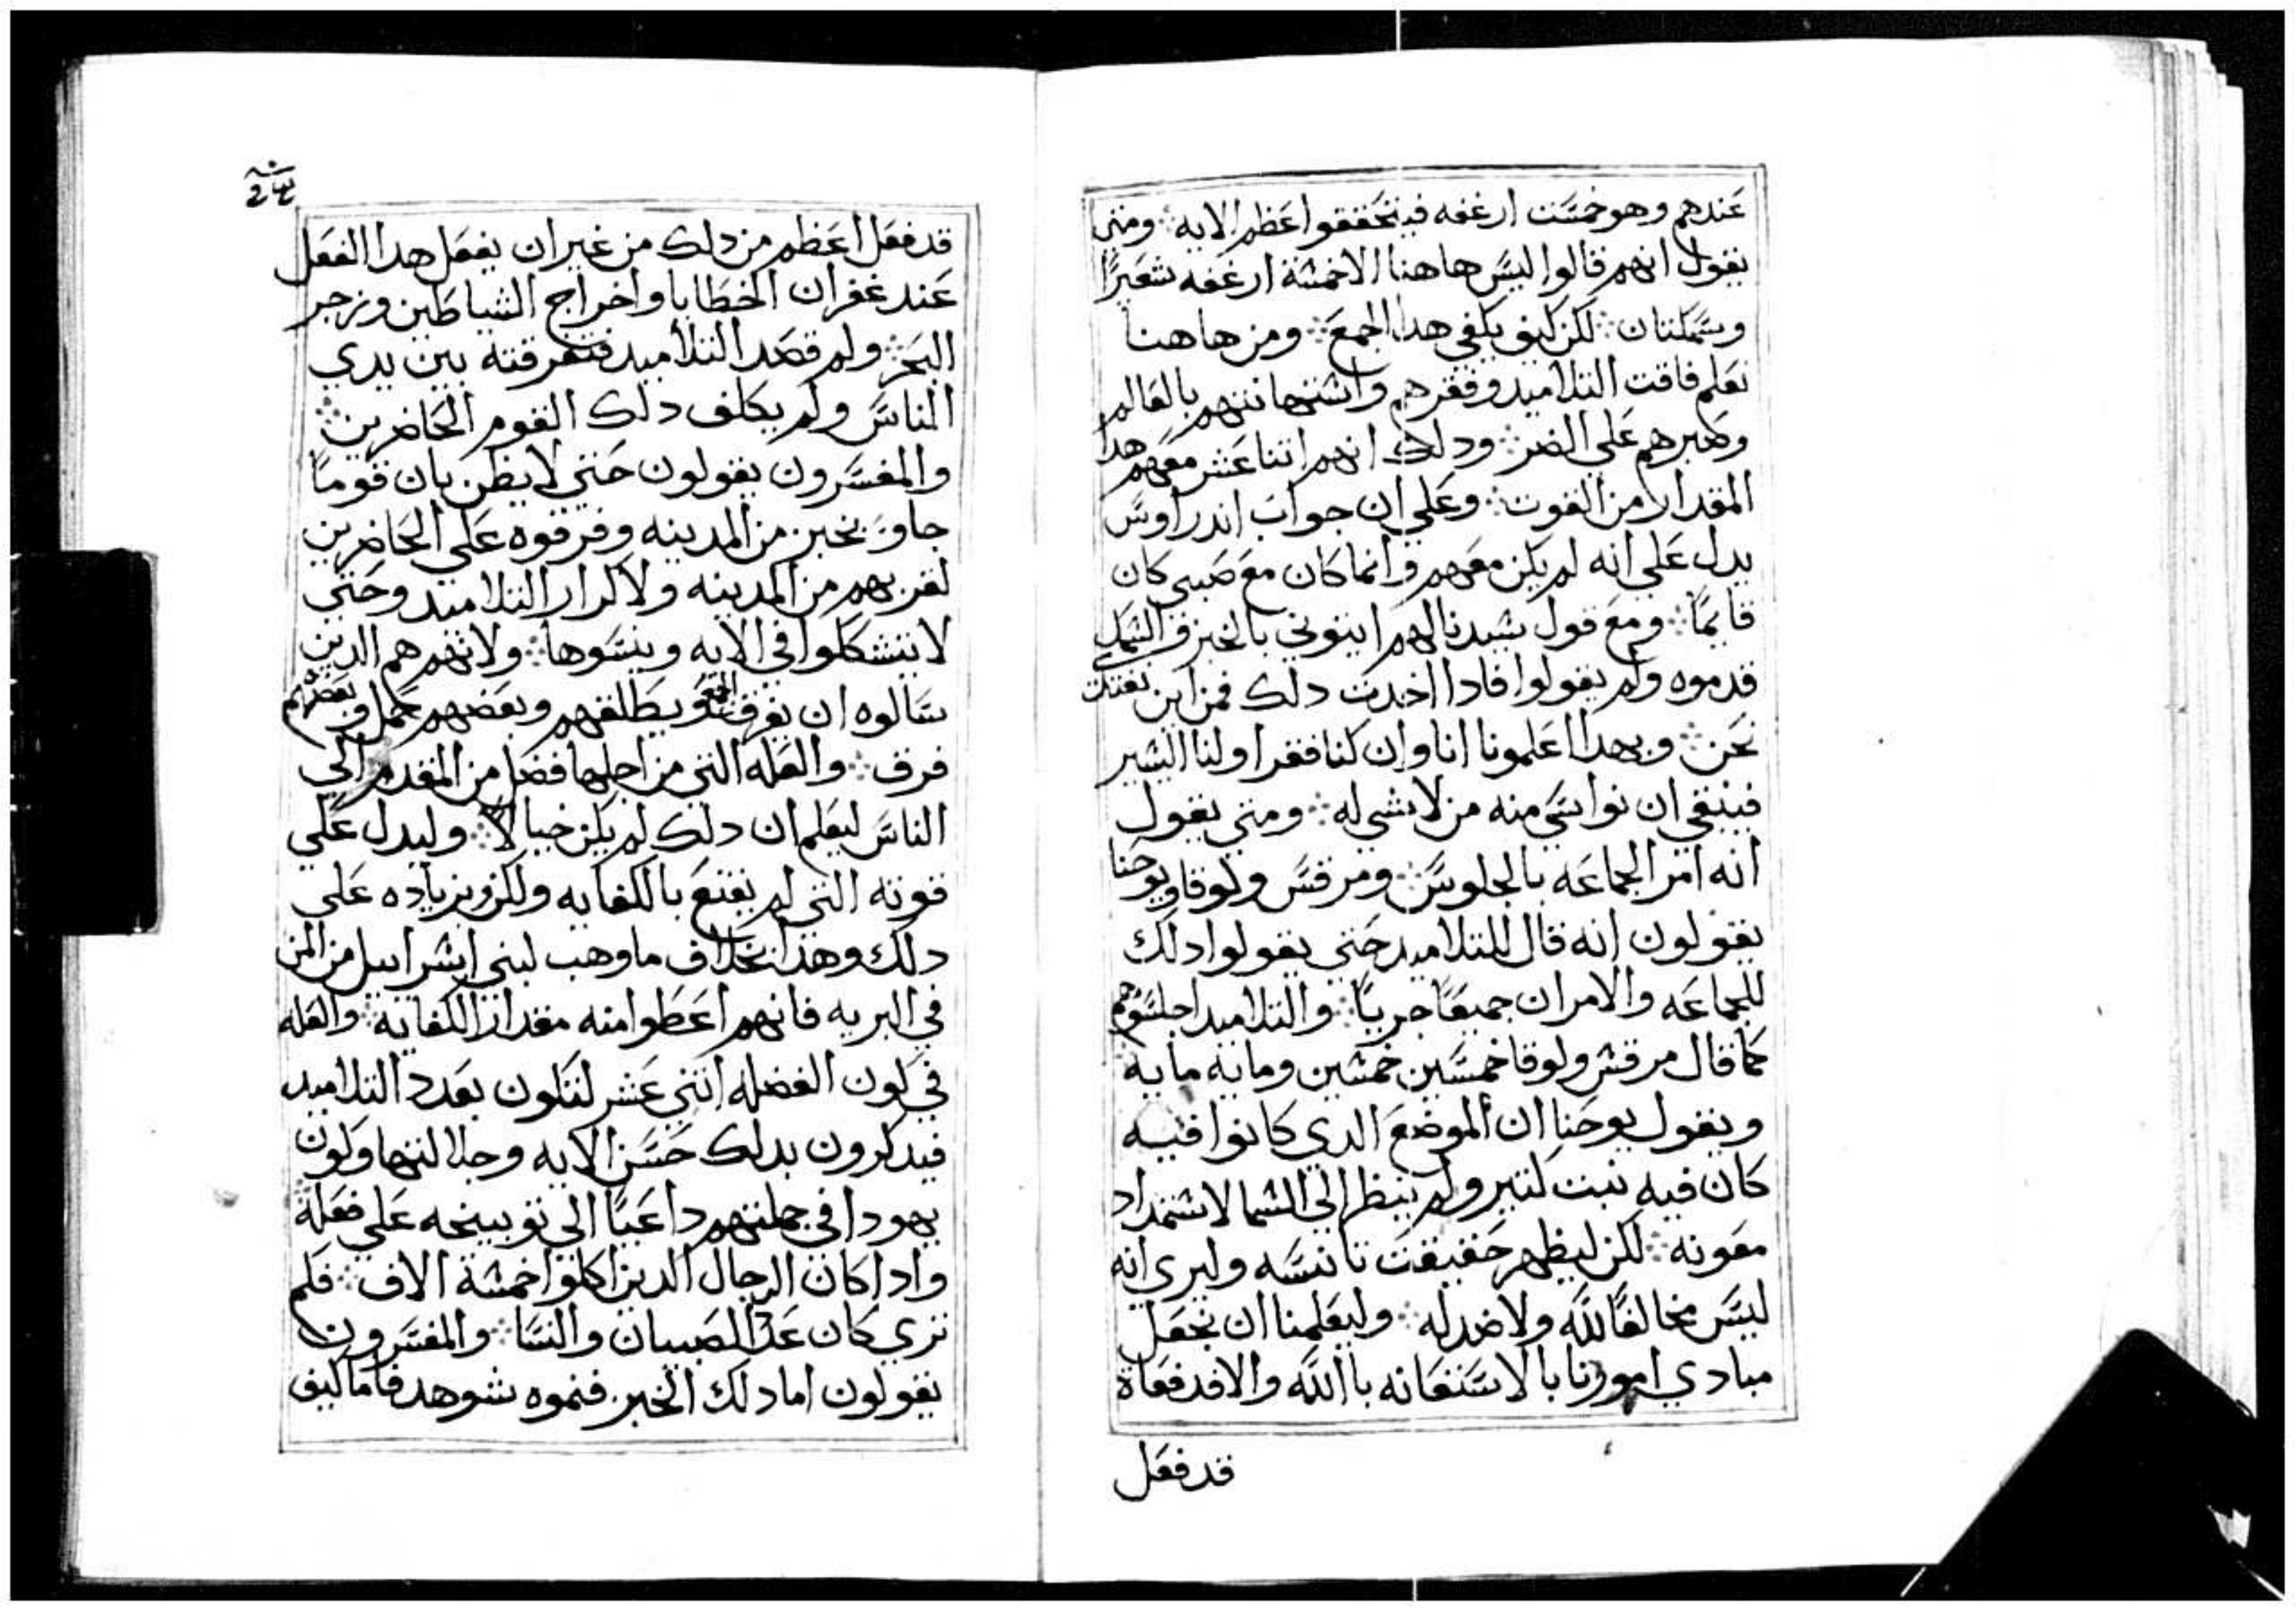 عندهم وهو خمست ارغفه فيتحققوا عظم الايه ۞ ومتي
يقول انهم قالوا ليس هاهنا الا خمسة ارغفه شعيرًا
وسمكتان ۞ لكن كيف يكفي هدا الجمع ۞ ومن هاهنا
نعلم فاقت التلاميد وفقرهم واستهانتهم بالعالم
وصبرهم علي الضر ۞ ودلك انهم اثنا عشر معهم هدا
المقدار من القوت ۞ وعلي ان جواب اندراوس
يدل علي انه لم يكن معهم وانما كان مع صبي كان
قايمًا ۞ ومع قول سيدنا لهم ايتوني بالخبز والسمك
قدموه ولم يقولوا فادا اخدت دلك فمن اين نقتات
نحن ۞ وبهدا اعلمونا انا وان كنا فقرا ولنا اليسير
فينبغي ان نواسي منه من لا شي له ۞ ومتي يقول
انه امر الجماعه بالجلوس ۞ ومرقس ولوقا ويوحنا
يقولون انه قال للتلاميد حتي يقولوا دلك
للجماعه والامران جميعًا جريًا ۞ والتلاميد اجلسوهم
كما قال مرقس ولوقا خمسين خمسين ومايه مايه
ويقول يوحنا ان الموضع الدي كانوا فيه
كان فيه نبت كتير ولم ينظر الي السما لاستمداد
معونه ۞ لكن ليظهر حقيقت تانسه وليري انه
ليس مخالفًا لله ولا ضد له ۞ وليعلمنا ان نجعل
مبادي امورنا بالاستعانه باالله والا فدفعاة
قد فعل
قد فعل اعظم من دلك من غير ان يفعل هدا الفعل
عند غفران الخطايا واخراج الشياطين وزجر
البحر ۞ ولم قصد التلاميد فتفرقته بين يدي
الناس ولم يكلف دلك القوم الحاضرين ۞
والمفسرون يقولون حتي لا يظن بان قومًا
جاو بخبز من المدينه وفرقوه علي الحاضرين
لقربهم من المدينه ولاكرار التلاميد وحتي
لا يتشكلوا في الايه وينسوها ۞ ولانهم هم الدين
سالوه ان يفرق الجمع ويطلقهم وبعضهم حمل وبعضهم
فرق ۞ والعله التي من اجلها فضل من المقدم الي
الناس ليعلم ان دلك لم يكن خيالًا ۞ وليدل علي
قوته التي لم يقتنع بالكفايه ولكن وبزياده علي
دلك وهدا بخلاف ما وهب لبني اسراييل من المن
في البريه فانهم اعطوا منه مقدار الكفاية ۞ والعله
في كون الفضله اتني عشر لتكون بعدد التلاميد
فيدكرون بدلك حسن الايه وجلالتها وكون
يهودا في جملتهم داعيًا الي توبيخه علي فعلة
وادا كان الرجال الدين اكلوا خمسة الاف ۞ فلم
تري كان عدد الصبيان والنسا ۞ والمفسرون
يقولون اما دلك الخبز فنموه شوهد فاما كيف